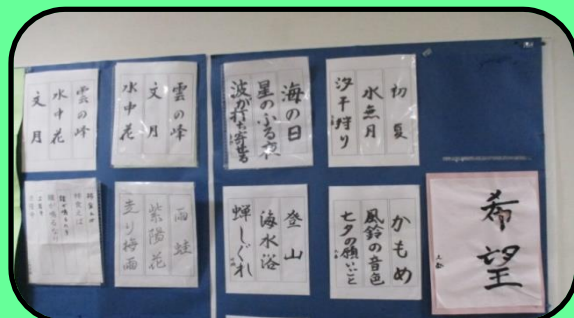 雲の峰
水中花
文月
雲の峰
文月
水中花
海の日
星のふる夜
波が打ち寄せる
初夏
水無月
汐干狩り
柿食えば
鐘が鳴るなり
雨蛙
紫陽花
走り梅雨
登山
海水浴
蝉しぐれ
かもめ
風鈴の音色
七夕の願いごと
希望